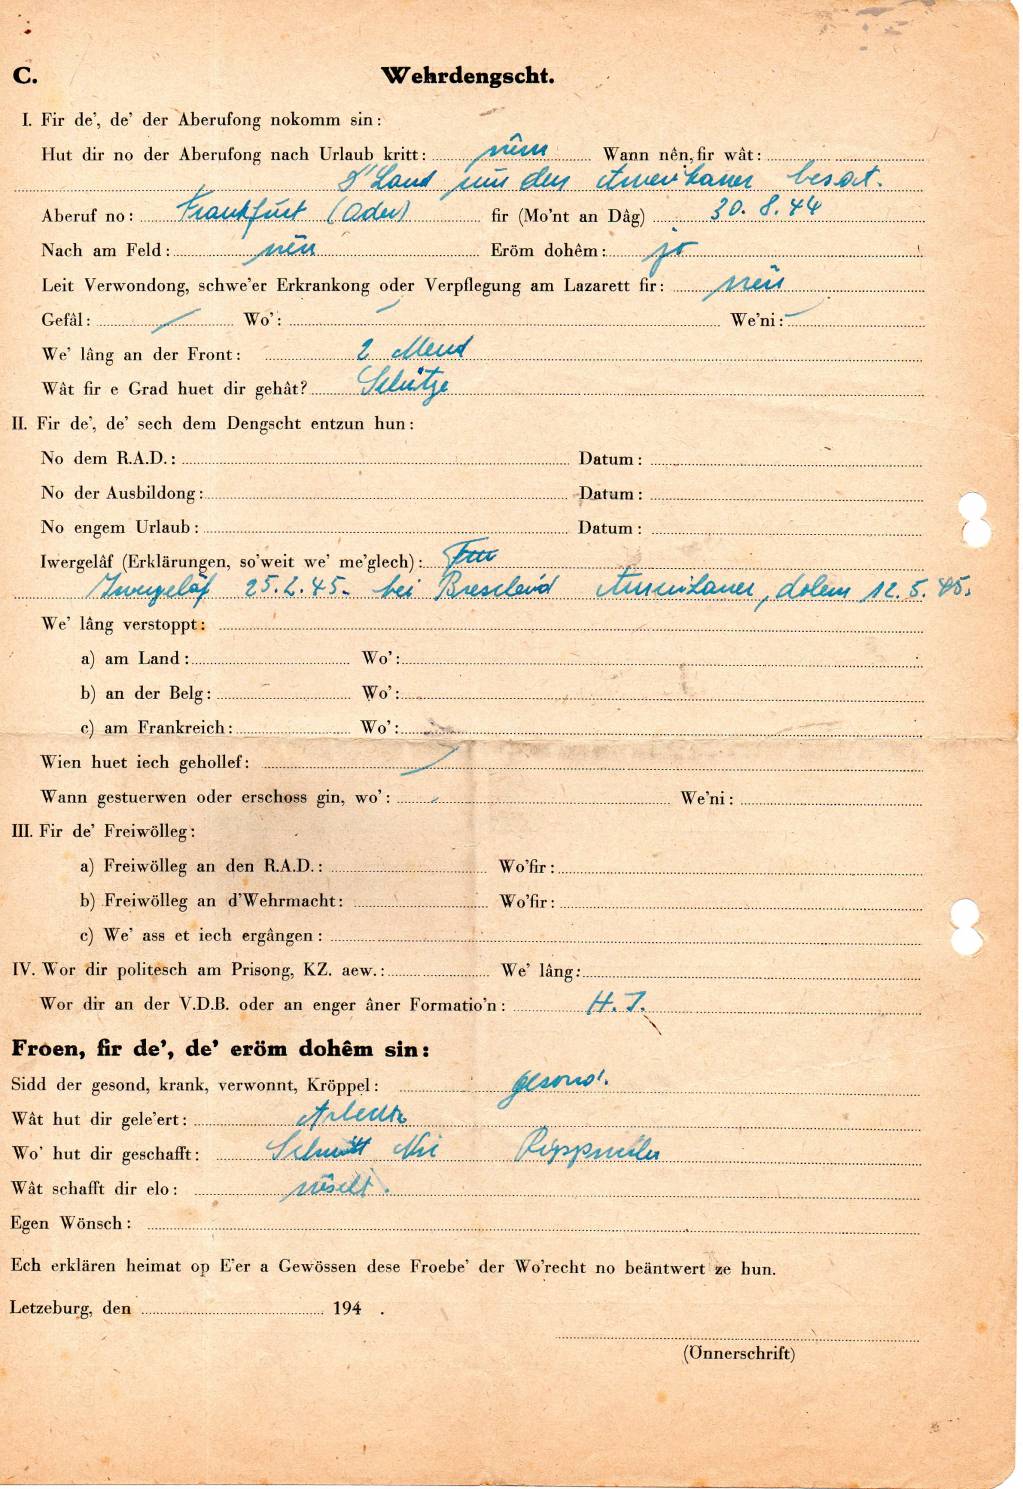 C. Wehrdengscht.
I. Fir de', de' der Aberufong nokomm sin:
Hut dir no der Aberufong nach Urlaub kritt: nên Wann nên, fir wât:
D'Land vun den Amerikaner besat.
Aberuf no: Frankfurt (Oder) fir (Mo'nt an Dâg) 30. 8. 44
Nach am Feld: nên Eröm dohêm: jo
Leit Verwondong, schwe'er Erkrankong oder Verpflegung am Lazarett fir: nên
Gefâl: Wo': We'ni:
We' lâng an der Front: 2 Mend
Wât fir e Grad huet dir gehât? Schütze
II. Fir de', de' sech dem Dengscht entzun hun:
No dem R.A.D.: Datum:
No der Ausbildong: Datum:
No engem Urlaub: Datum:
Iwergelâf (Erklärungen, so'weit we' me'glech):
Iwergelâf 25.2.45. bei Amerikaner, dohem 12.5.45.
We' lâng verstoppt:
a) am Land: Wo':
b) an der Belg: Wo':
c) am Frankreich: Wo':
Wien huet iech gehollef:
Wann gestuerwen oder erschoss gin, wo': We'ni:
III. Fir de' Freiwölleg:
a) Freiwölleg an den R.A.D.: Wo'fir:
b) Freiwölleg an d'Wehrmacht: Wo'fir:
c) We' ass et iech ergângen:
IV. Wor dir politesch am Prisong, KZ. aew.: We' lâng:
Wor dir an der V.D.B. oder an enger âner Formatio'n: H.J.
Froen, fir de', de' eröm dohêm sin:
Sidd der gesond, krank, verwonnt, Kröppel: gesond.
Wât hut dir gele'ert:
Wo' hut dir geschafft: Schmitt Nic
Wât schafft dir elo: nêscht.
Egen Wönsch:
Ech erklären heimat op E'er a Gewössen dese Froebe' der Wo'recht no beäntwert ze hun.
Letzeburg, den 194 .
(Önnerschrift)